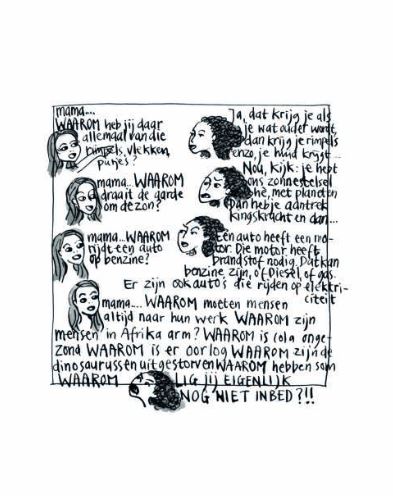 mama...
WAAROM heb jij daar
allemaal van die
rimpels, vlekken,
putjes?
Ja, dat krijg je als
je wat ouder wordt,
dan krijg je rimpels
enzo, je huid krijgt...
mama...WAAROM
draait de aarde
om de zon?
Nou, kijk: je hebt
ons zonnestelsel
hé, met planeten
Dan heb je aantrek
kingskracht en dan...
mama...WAAROM
rijdt een auto
op benzine?
Een auto heeft een mo-
tor. Die motor heeft
brandstof nodig. Dat kan
benzine zijn, of Diesel, of gas.
Er zijn ook auto's die rijden op elektri-
citeit
mama.... WAAROM moeten mensen
altijd naar hun werk WAAROM zijn
mensen in Afrika arm? WAAROM is cola onge-
zond WAAROM is er oorlog WAAROM zijn de
dinosaurussen uitgestorven WAAROM hebben som
WAAROM LIG JIJ EIGENLIJK
NOG NIET IN BED?!!